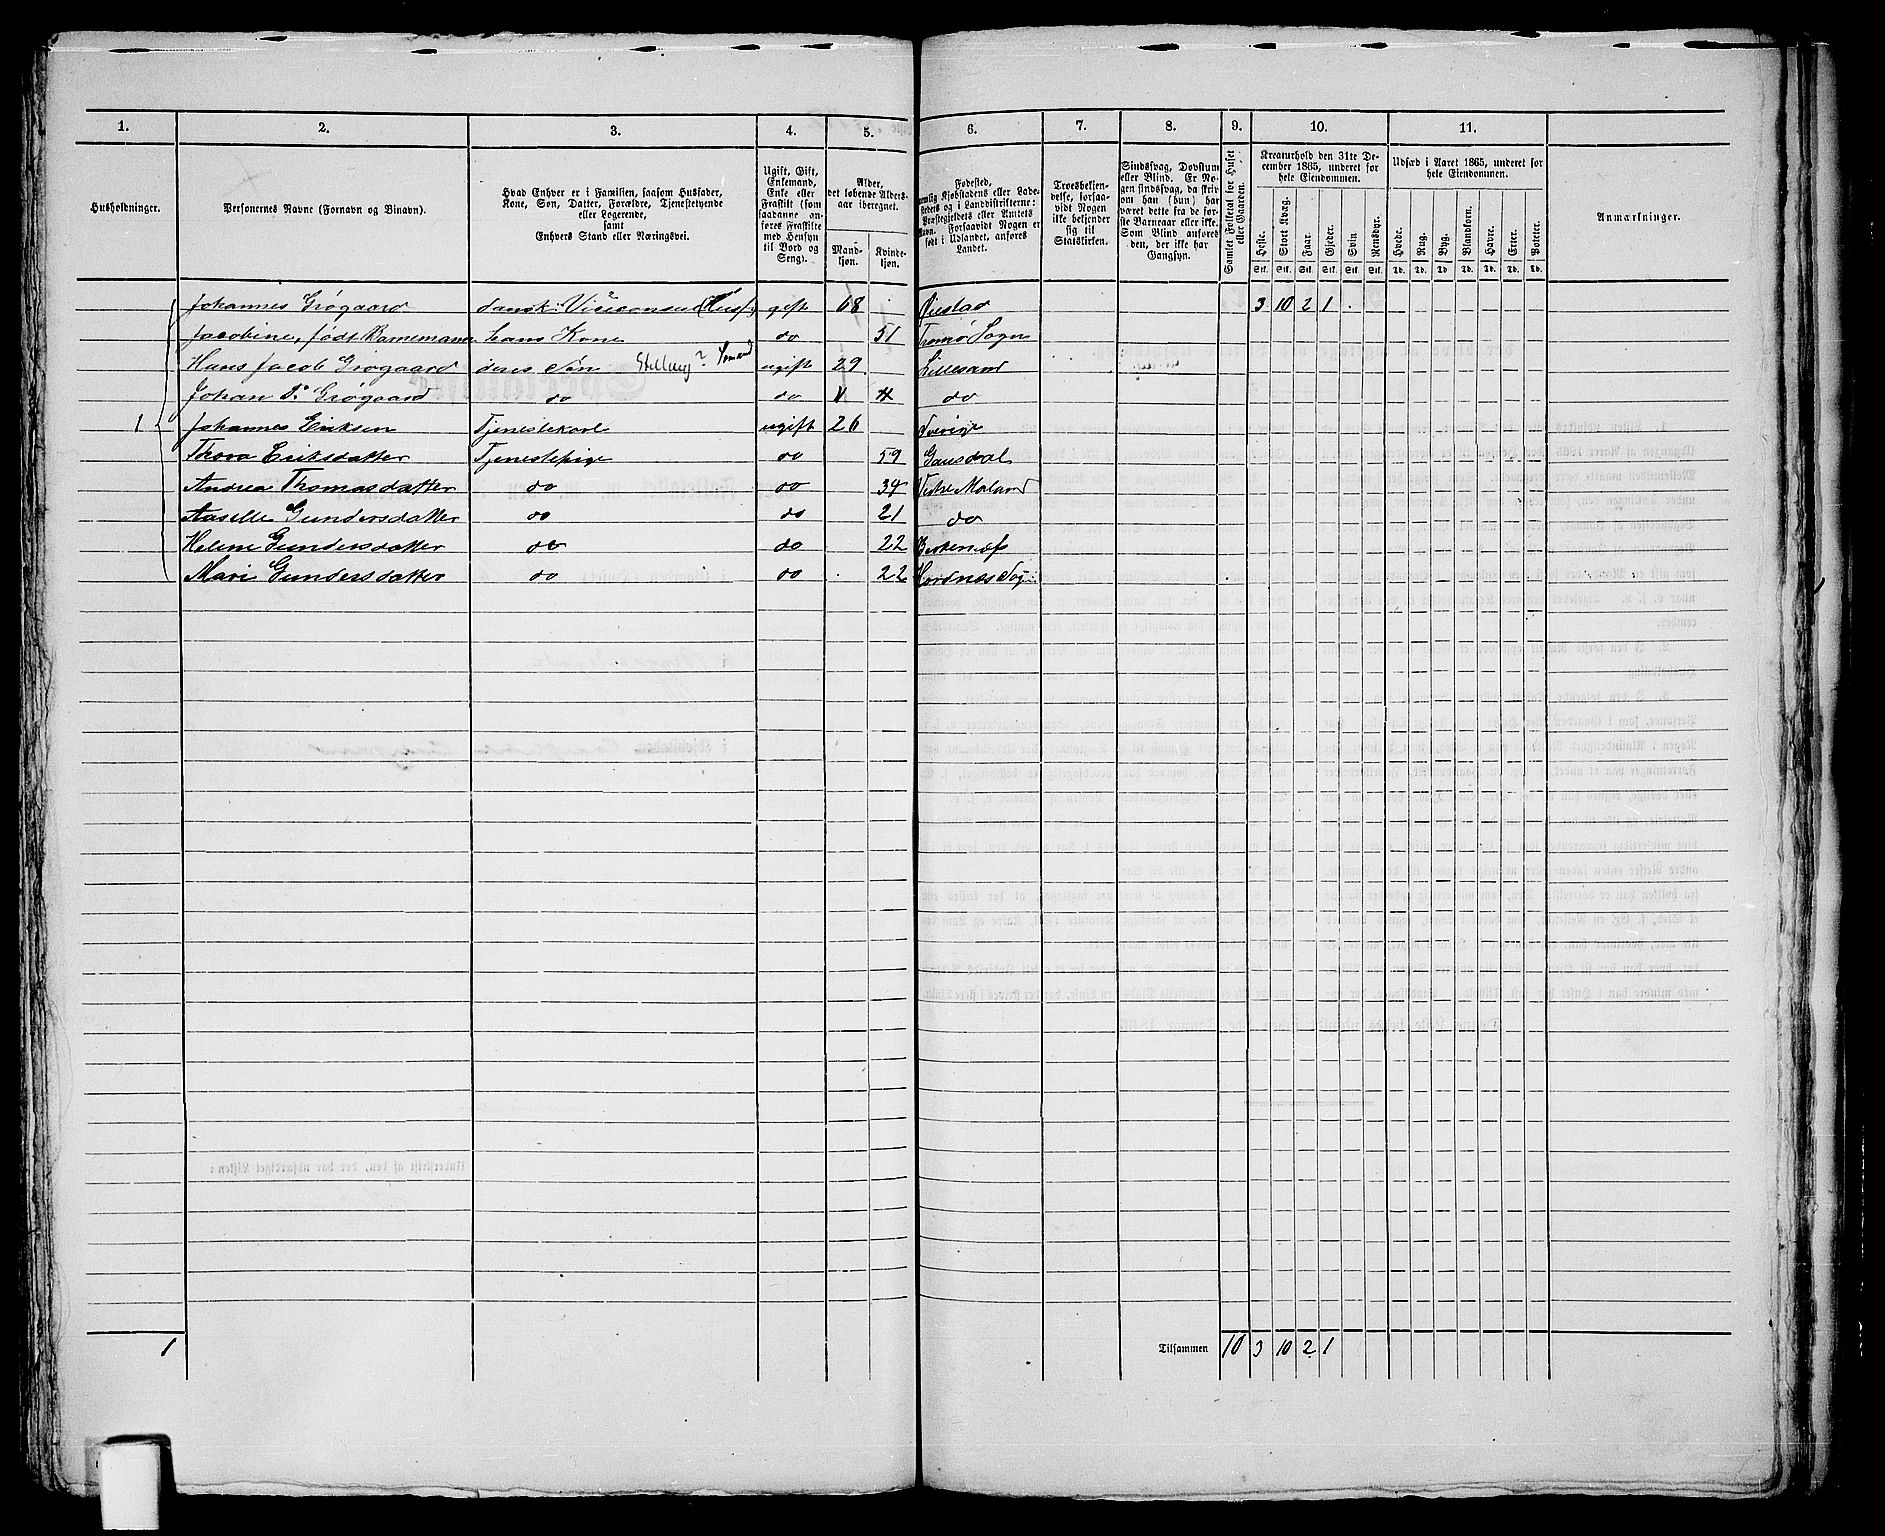 1. 2. 3. 4. 5. 6. 7. 8. 9. 10. 11.
Husholdninger.
Personernes Navne (Fornavn og Binavn).
Hvad Enhver er i Familien, saasom Husfader,
Kone, Søn, Datter, Forældre, Tjenestetyende
eller Logerende,
samt
Enhvers Stand eller Næringsvei.
Ugift, Gift,
Enkemand,
Enke eller
Fraskilt (som
saadanne an-
føres Fraskilte
med Hensyn
til Bord og
Seng).
Alder,
det løbende Alders-
aar iberegnet.
Mand-
kjøn.
Kvinde-
kjøn.
Fødested,
nemlig Kjøbstadens eller Lade-
stedets og i Landdistrikterne:
Præstegjeldets eller Amtets
Navn. Forsaavidt Nogen er
født i Udlandet, anføres
Landet.
Troesbekjen-
delse, forsaa-
vidt Nogen
ikke bekjender
sig til
Statskirken.
Sindssvag, Døvstum
eller Blind. Er No-
gen sindssvag, da skriv
om han (hun) har
været dette fra de før-
ste Barneaar eller ikke.
Som Blind anføres
den, der ikke har
Gangsyn.
Samlet Folketal for Huset
eller Gaarden.
Kreaturhold den 31te De-
cember 1865, underet for
hele Eiendommen.
Heste. Stort Kvæg. Faar. Gjeder. Svin. Rensdyr.
Stk. Stk. Stk. Stk. Stk. Stk.
Udsæd i Aaret 1865, underet for
hele Eiendommen.
Hvede. Rug. Byg. Blandkorn. Havre. Erter. Poteter.
Td. Td. Td. Td. Td. Td. Td.
Anmærkninger.
Johannes Grøgaard dansk: Viceconsul (Husf.) gift 68 Øiestad 3 10 2 1
Jacobine, født hans Kone do 51 Tromø Sogn
Hans Jacob Grøgaard deres Søn Stilling? Sømand ugift 29 Lillesand
Johan D: Grøgaard do do do
1 Johannes Eriksen Tjenestekarl ugift 26 Sverige
Thora Eriksdatter Tjenestepige do 59
Andrea Thomasdatter do do 34 Vestre Moland
Aaselle Gundersdatter do do 21 do
Helene Gundersdatter do do 22 Birkenæs
Mari Gundersdatter do do 22 Hordnæs Sog:
1 Tilsammen 10 3 10 2 1